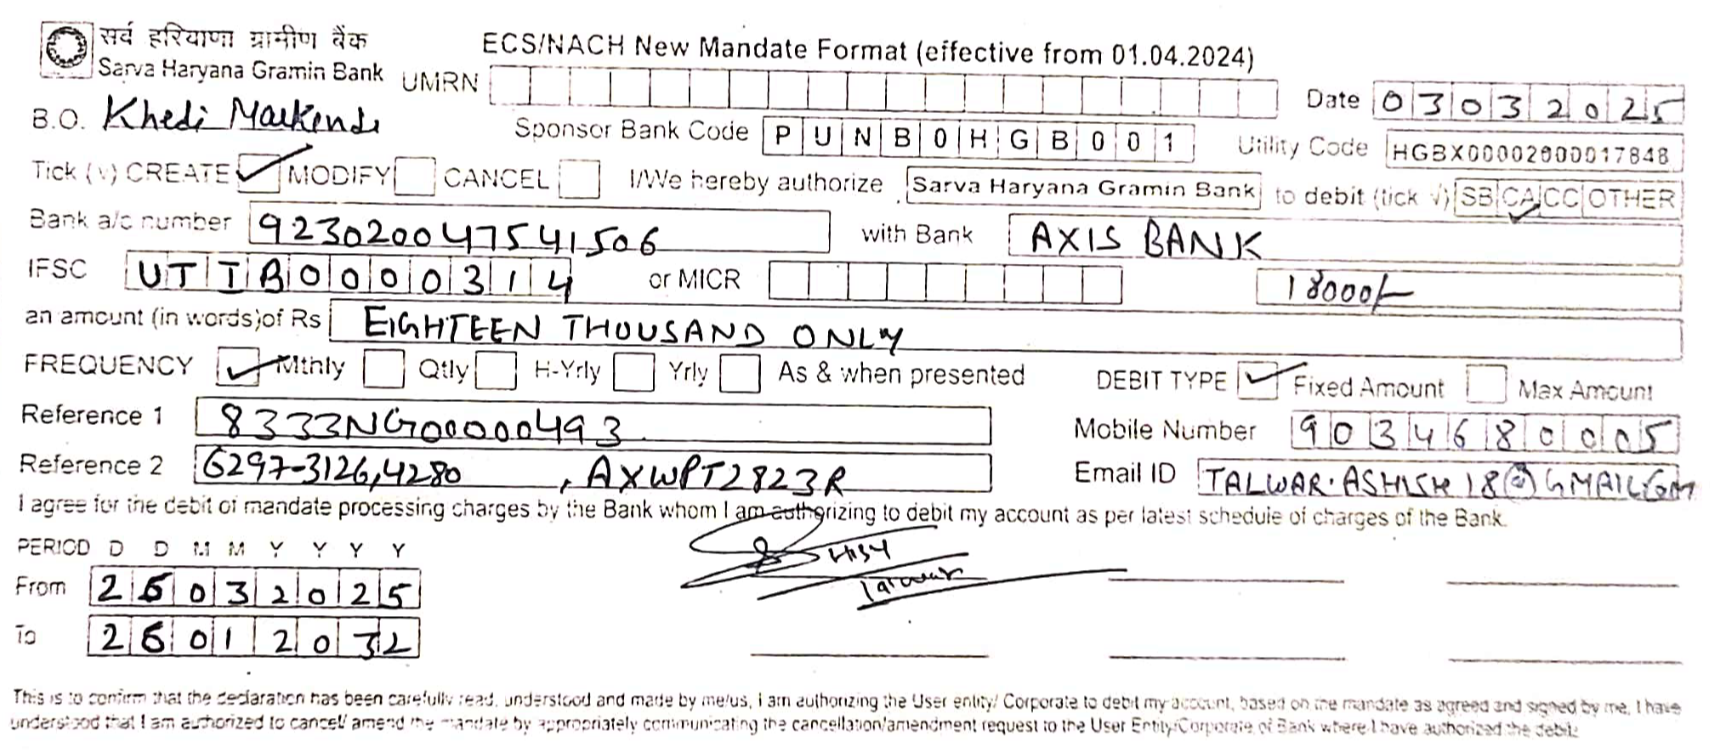 सर्व हरियाणा ग्रामीण बैंक
Sarva Haryana Gramin Bank
ECS/NACH New Mandate Format (effective from 01.04.2024)
UMRN
Date 03032025
B.O. Khedi Markanda
Sponsor Bank Code PUNB0HGB001
Utility Code HGBX00002000017848
Tick (√) CREATE ✓ MODIFY CANCEL I/We hereby authorize Sarva Haryana Gramin Bank to debit (tick √) SB CA ✓ CC OTHER
Bank a/c number 923020047541506 with Bank AXIS BANK
IFSC UTIB0000314 or MICR 18000/-
an amount (in words)of Rs EIGHTEEN THOUSAND ONLY
FREQUENCY ✓ Mthly Qtly H-Yrly Yrly As & when presented DEBIT TYPE ✓ Fixed Amount Max Amount
Reference 1 8333NG00000493 Mobile Number 9034680005
Reference 2 6297-3126,4280 , AXWPT2823R Email ID TALWAR.ASHISH18@GMAIL.COM
I agree for the debit of mandate processing charges by the Bank whom I am authorizing to debit my account as per latest schedule of charges of the Bank.
PERIOD D D M M Y Y Y Y
From 26032025
To 26012032
This is to confirm that the declaration has been carefully read, understood and made by me/us, I am authorizing the User entity/ Corporate to debit my account, based on the mandate as agreed and signed by me, I have
understood that I am authorized to cancel/ amend the mandate by appropriately communicating the cancellation/amendment request to the User Entity/Corporate of Bank where I have authorized the debit.